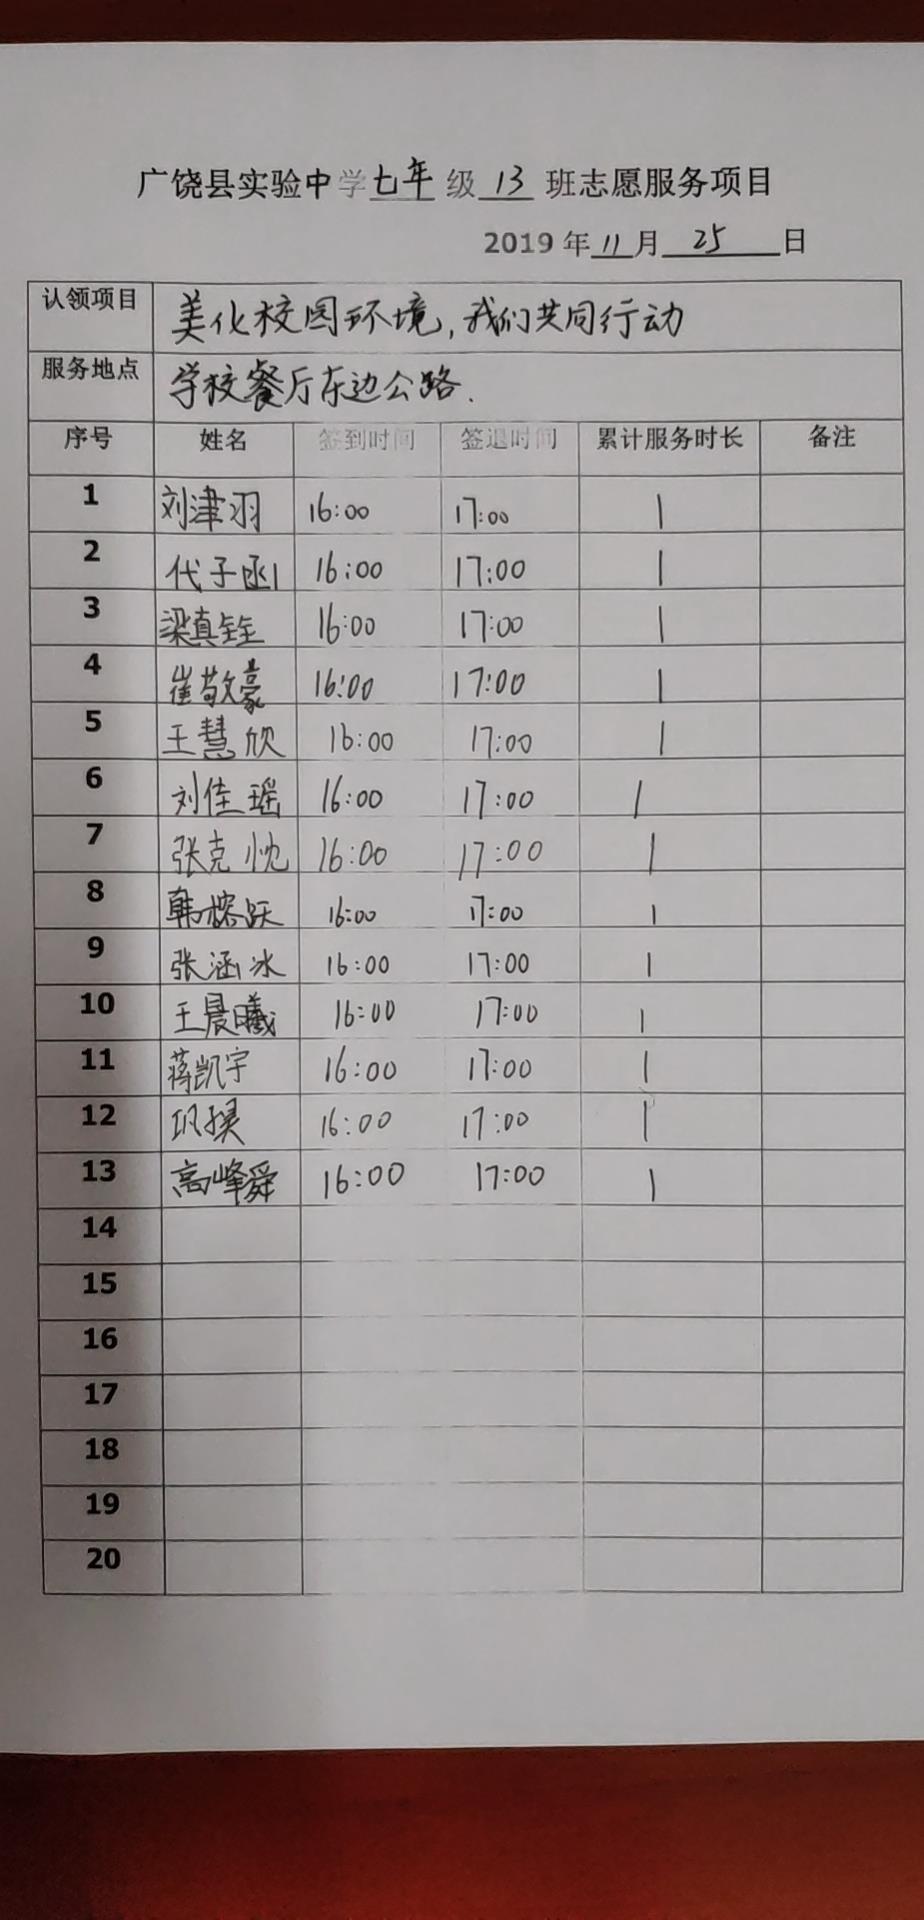 广饶县实验中学七年级13班志愿服务项目
2019年11月25日
认领项目 美化校园环境,我们共同行动
服务地点 学校餐厅东边公路.
序号 姓名 签到时间 签退时间 累计服务时长 备注
1 刘津羽 16:00 17:00 1
2 代子函 16:00 17:00 1
3 梁真铨 16:00 17:00 1
4 崔敬豪 16:00 17:00 1
5 王慧欣 16:00 17:00 1
6 刘佳瑶 16:00 17:00 1
7 张克忱 16:00 17:00 1
8 韩榕跃 16:00 17:00 1
9 张涵冰 16:00 17:00 1
10 王晨曦 16:00 17:00 1
11 蒋凯宇 16:00 17:00 1
12 16:00 17:00 1
13 高峰舜 16:00 17:00 1
14
15
16
17
18
19
20